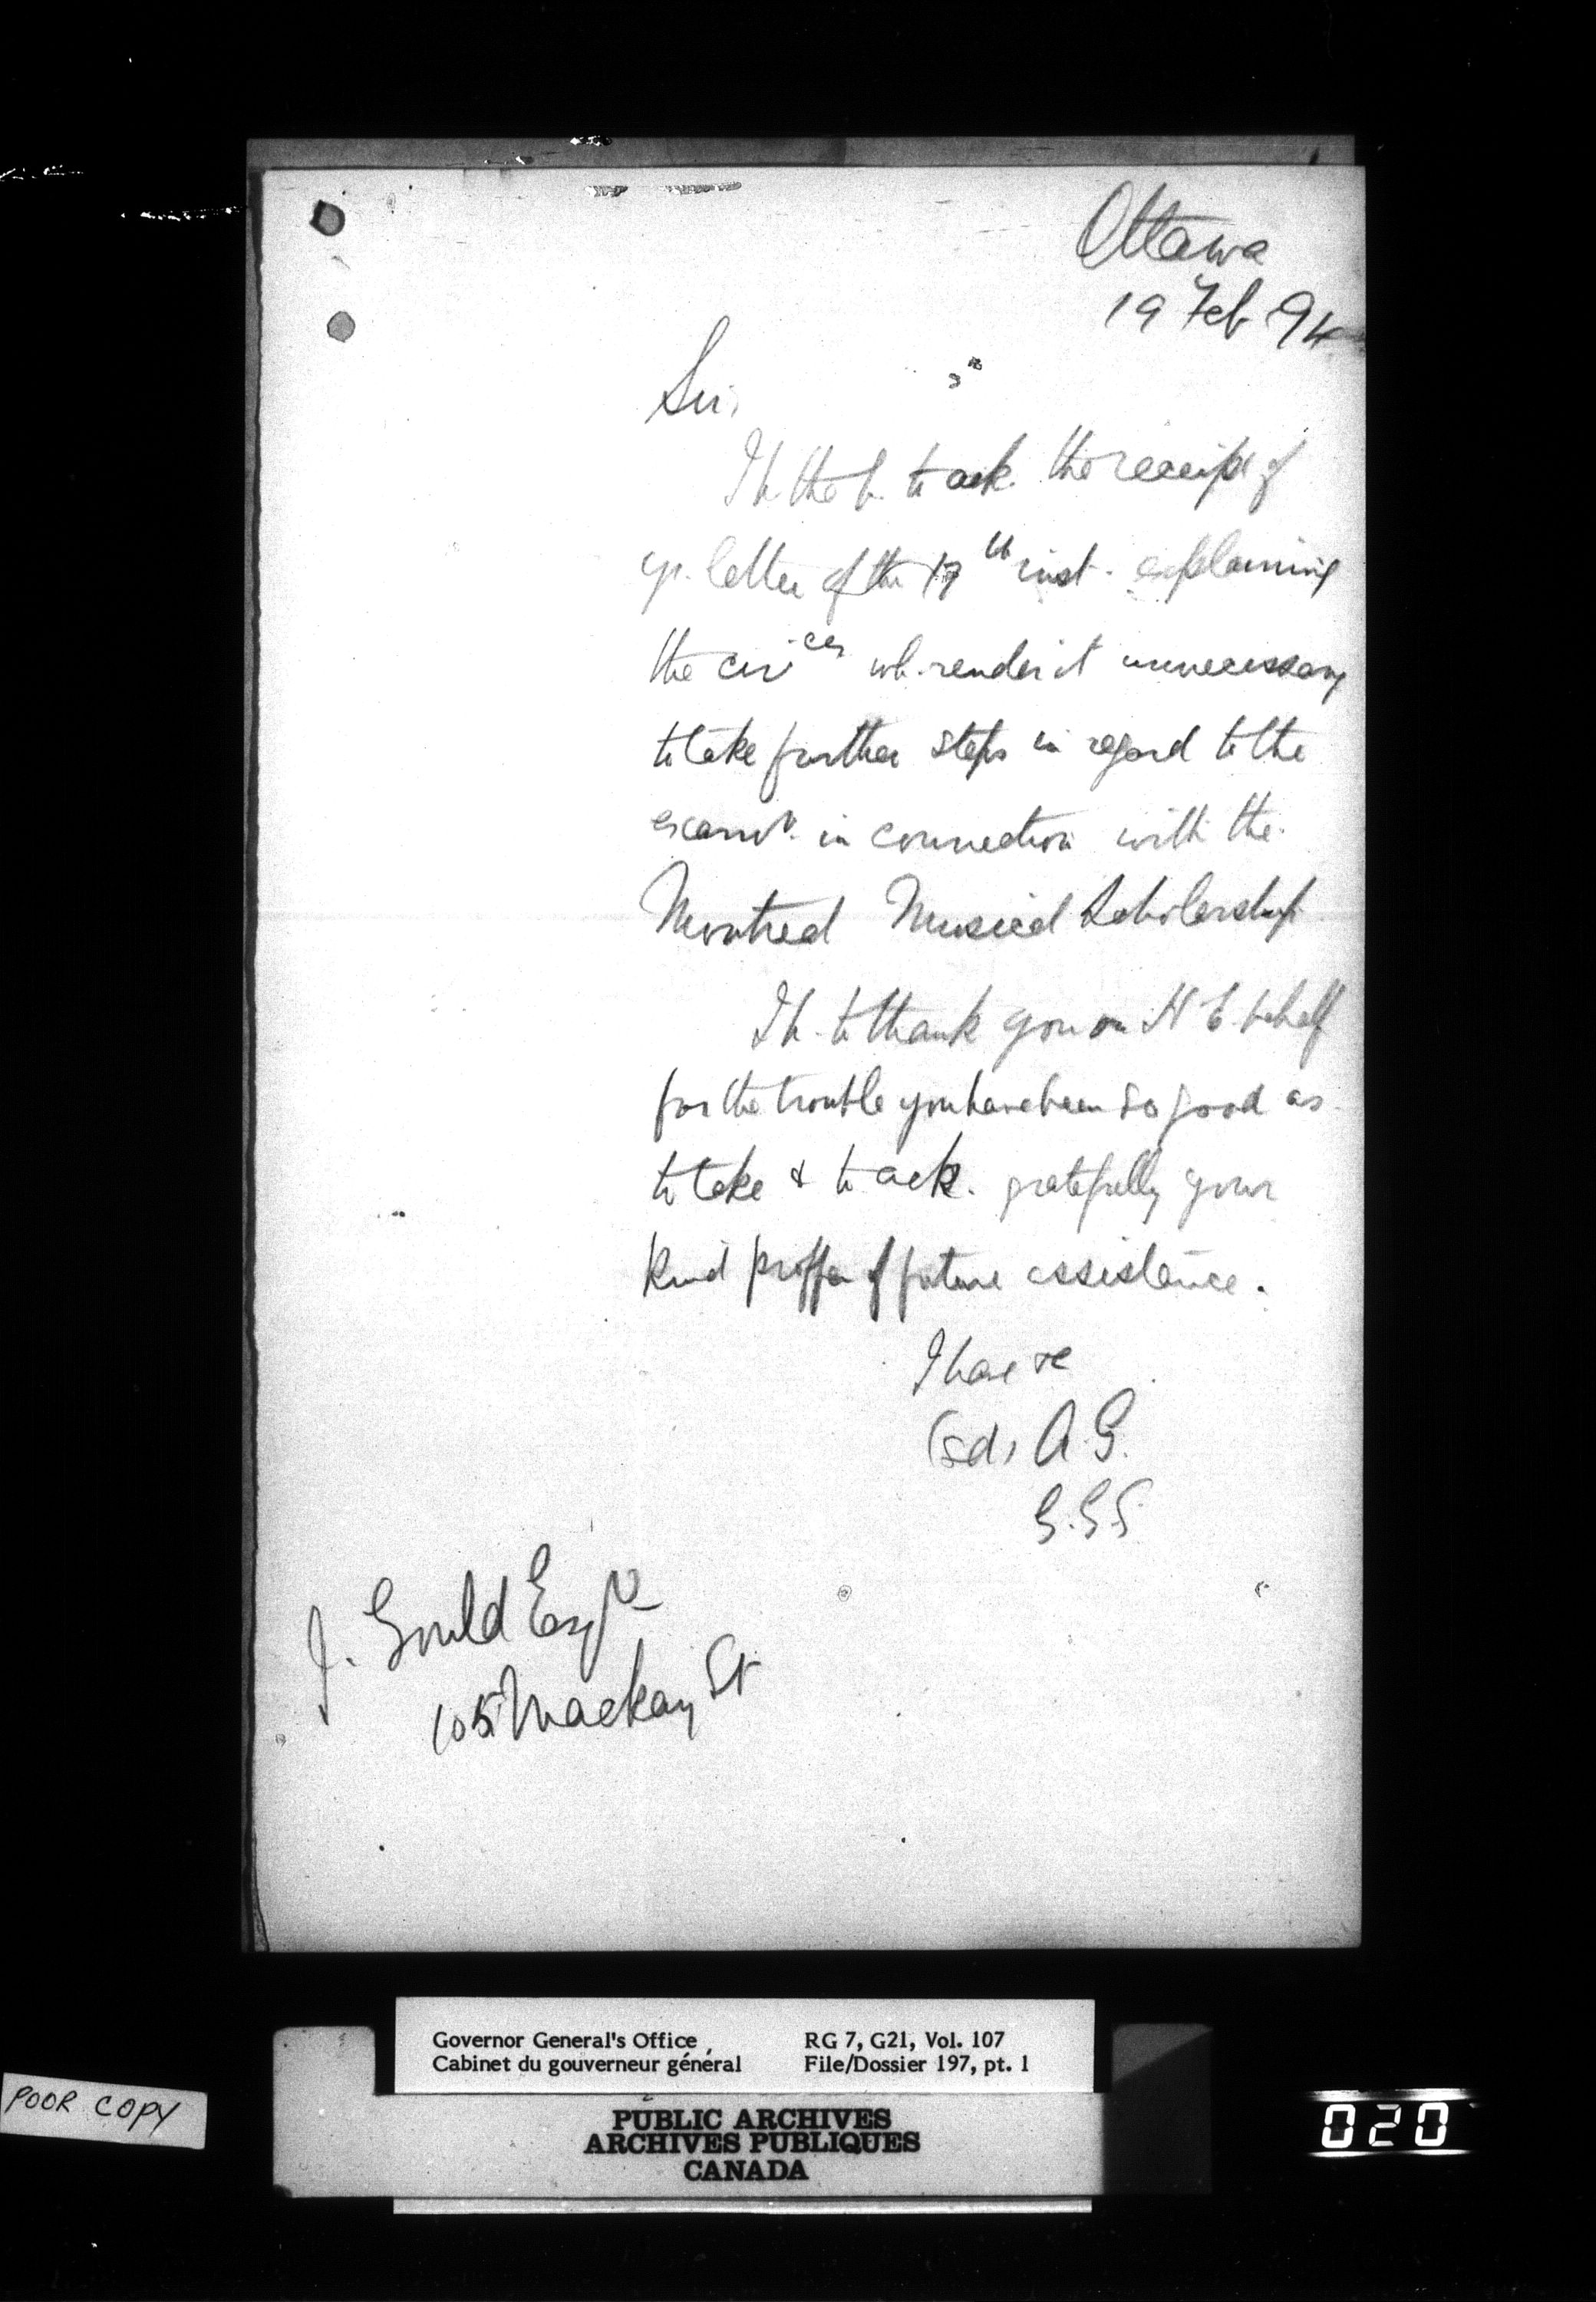 Ottawa
19 Feb 94
Sir,
I h. the h. to ack. the receipt of
yr. letter of the 17th inst. explaining
the circes wh. render it unnecessary
to take further steps in regard to the
examn. in connection with the
Montreal Musical Scholarship
I h. to thank you on H E behalf
for the trouble you have been so good as
to take & to ack. gratefully your
kind proffer of future assistance.
I have &c
(sd) A.G.
G.G.S.
J. Gould Esqre
105 Mackay St
Governor General's Office RG 7, G21, Vol. 107
Cabinet du gouverneur général File/Dossier 197, pt. 1
POOR COPY
PUBLIC ARCHIVES
ARCHIVES PUBLIQUES
CANADA
020